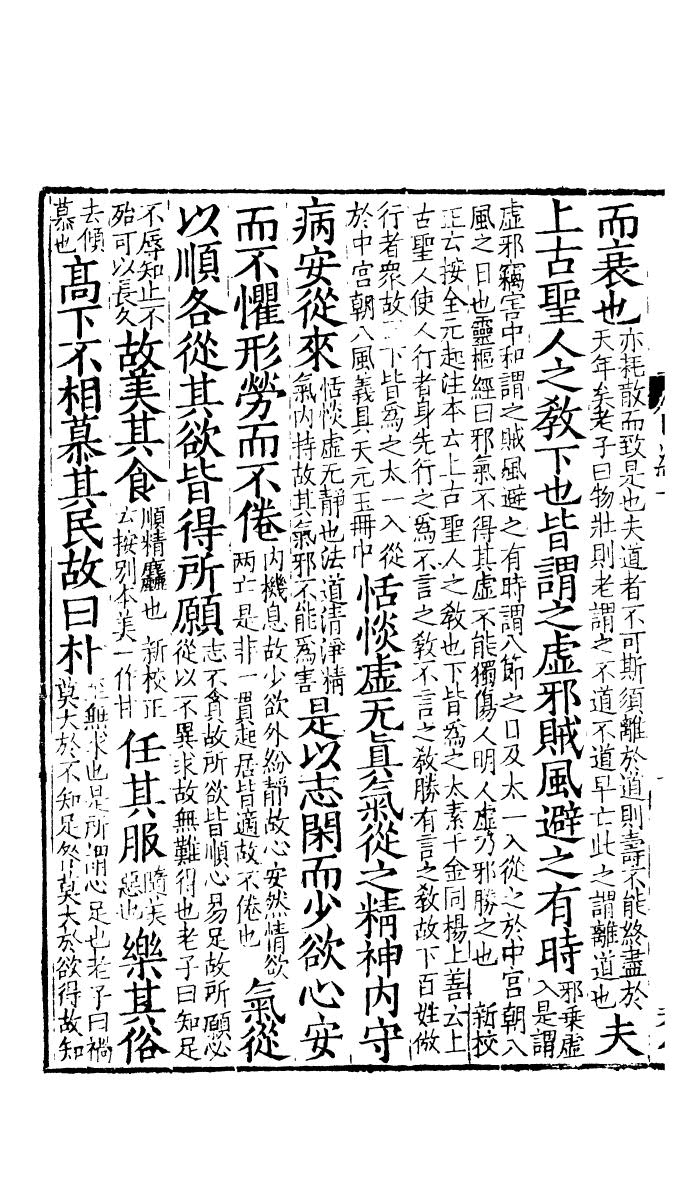 而衰也亦耗散而致是也夫道者不可斯須離於道則壽不能終盡於天年矣老子曰物壯則老謂之不道不道早亡此之謂離道也夫
上古聖人之教下也皆謂之虛邪賊風避之有時邪乘虛入是謂
虛邪竊害中和謂之賊風避之有時謂八節之日及太一入從之於中宮朝八風之日也靈樞經曰邪氣不得其虛不能獨傷人明人虛乃邪勝之也 新校
正云按全元起注本云上古聖人之教也下皆為之太素千金同楊上善云上古聖人使人行者身先行之為不言之教不言之教勝有言之教故下百姓倣
行者眾故下皆為之太一入從於中宮朝八風義具天元玉冊中恬惔虛无真氣從之精神內守
病安從來恬惔虛无靜也法道清淨精氣內持故其氣邪不能為害是以志閑而少欲心安
而不懼形勞而不倦內機息故少欲外紛靜故心安然情欲兩亡是非一貫起居皆適故不倦也氣從
以順各從其欲皆得所願志不貪故所欲皆順心易足故所願必從以不異求故無難得也老子曰知足
不辱知止不殆可以長久故美其食順精麤也 新校正云按別本美一作甘任其服隨美惡也樂其俗
去傾慕也高下不相慕其民故曰朴至無求也是所謂心足也老子曰禍莫大於不知足咎莫大於欲得故知